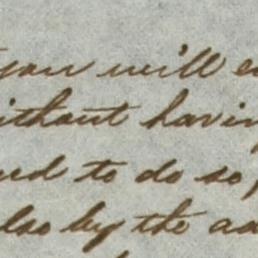 you will
without having
to do so,
also by the